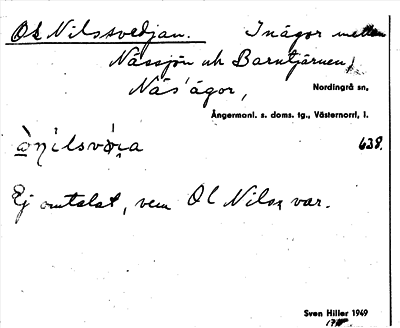 Ol Nilssvedjan. Inägor mellan
Nässjön och Barntjärnen,
Näs' ägor, Nordingrå sn,
Ångermanl. s. doms. tg., Västernorrl. l.
638.
Ej omtalat, vem Ol Nilss var.
Sven Hiller 1949